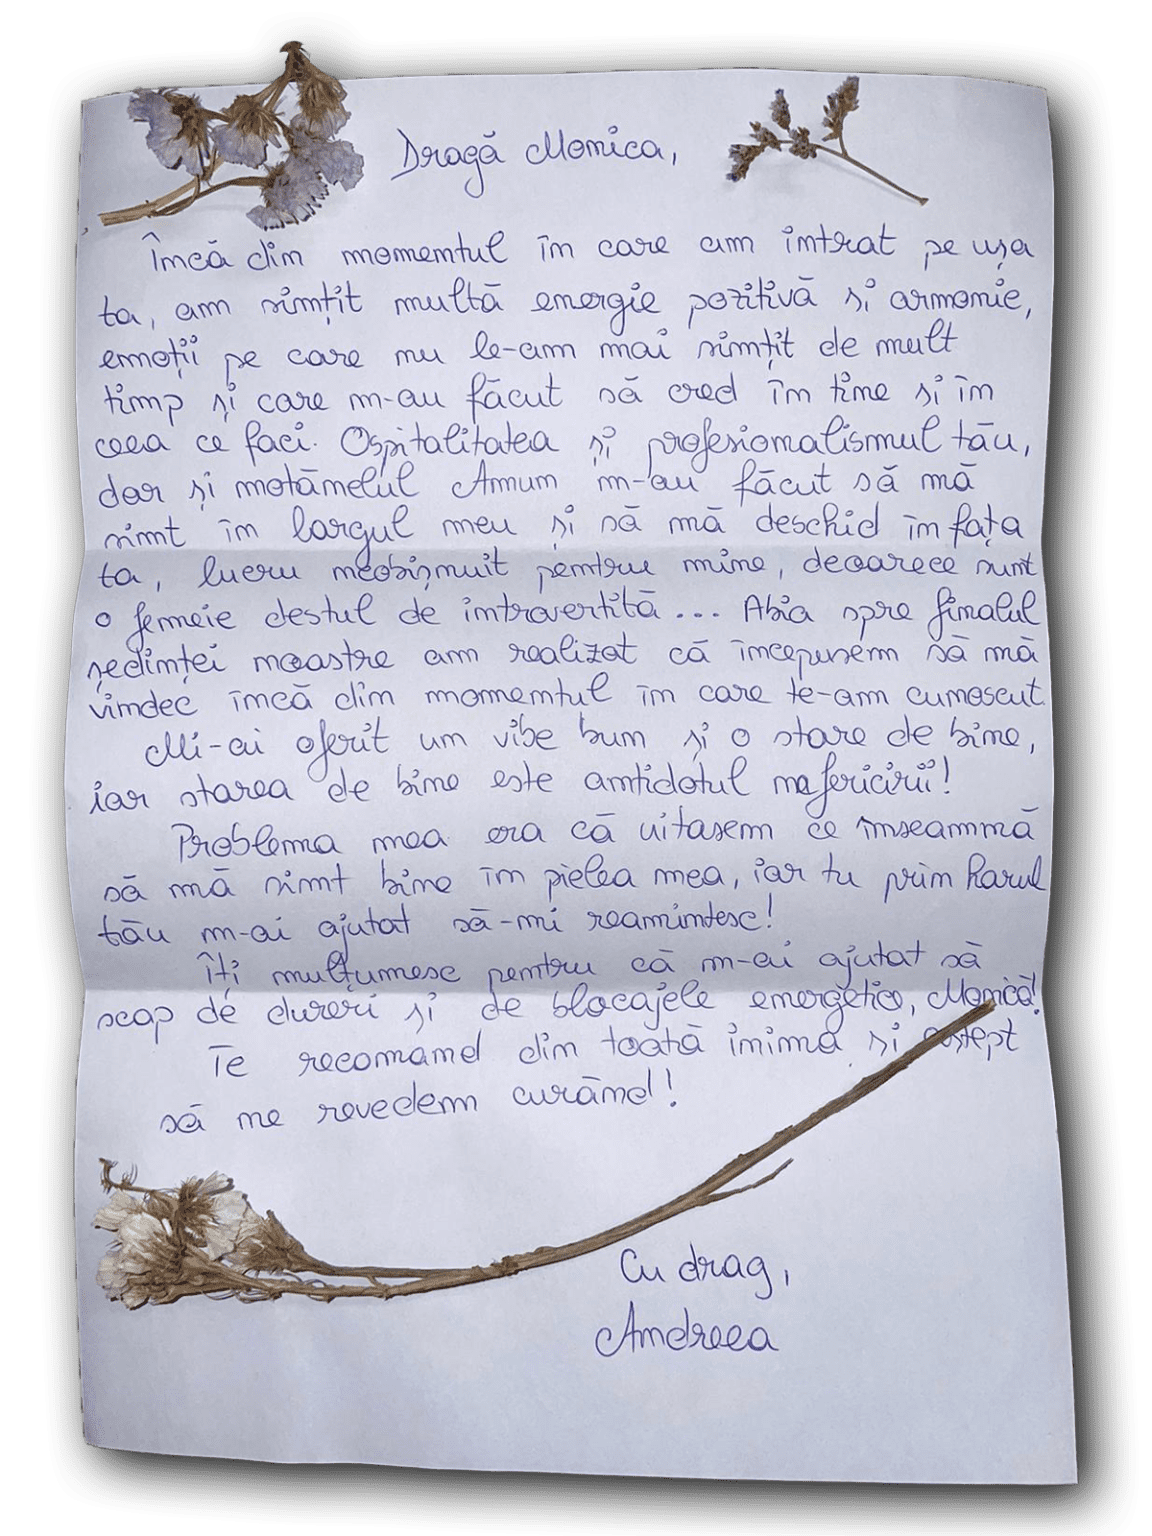 Dragă Monica,
Încă din momentul în care am intrat pe ușa
ta, am simțit multă energie pozitivă și armonie,
emoții pe care nu le-am mai simțit de mult
timp și care m-au făcut să cred în tine și în
ceea ce faci. Ospitalitatea și profesionalismul tău,
dar și motănelul Amun m-au făcut să mă
simt în largul meu și să mă deschid în fața
ta, lucru neobișnuit pentru mine, deoarece sunt
o femeie destul de introvertită... Abia spre finalul
ședinței noastre am realizat că începusem să mă
vindec încă din momentul în care te-am cunoscut.
Mi-ai oferit un vibe bun și o stare de bine,
iar starea de bine este antidotul nefericirii!
Problema mea era că uitasem ce înseamnă
să mă simt bine în pielea mea, iar tu prin harul
tău m-ai ajutat să-mi reamintesc!
Îți mulțumesc pentru că m-ai ajutat să
scap de dureri și de blocajele energetice, Monica!
Te recomand din toată inima și aștept
să ne revedem curând!
Cu drag,
Andreea